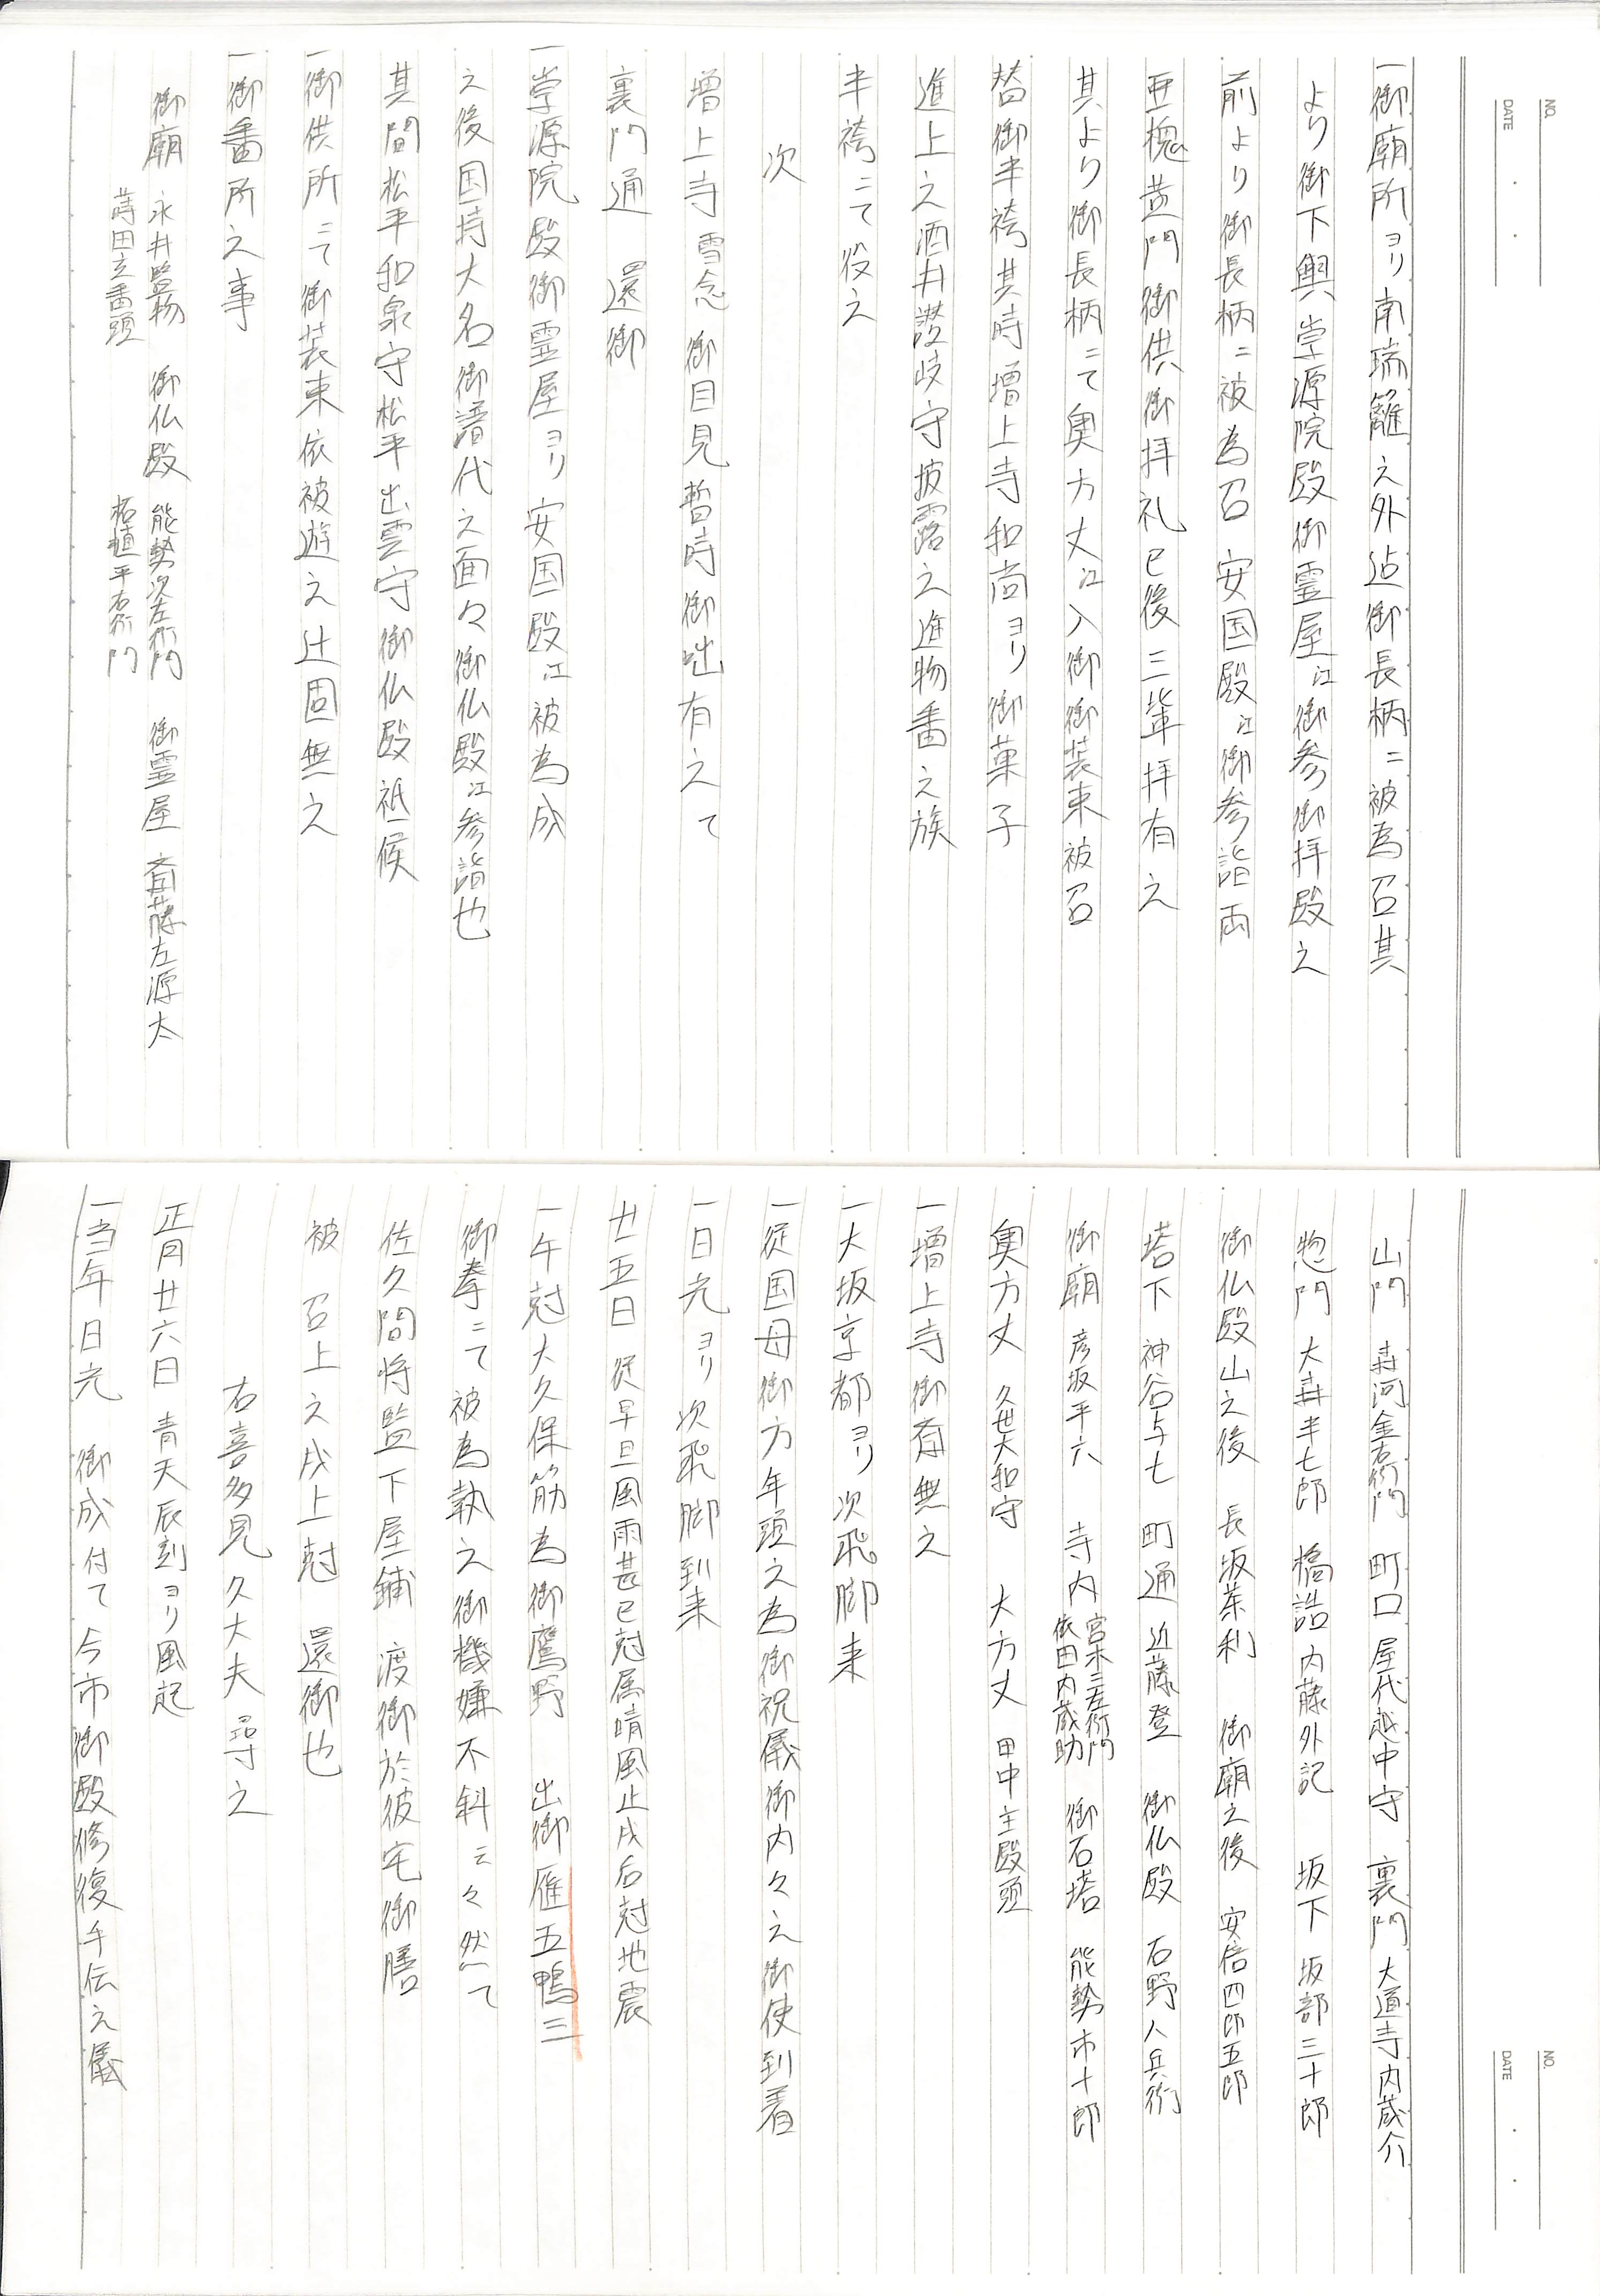 NO.
DATE
一御廟所ヨリ南瑞籬之外迠御長柄ニ被為召其
より御下輿崇源院殿御霊屋江御参御拝殿之
前より御長柄ニ被為召 安国殿江御参詣両
亜槐黄門御供御拝礼已後三輩拝有之
其より御長柄ニて奥方丈江入御御装束被召
替御半袴其時増上寺和尚ヨリ御菓子
進上之酒井讃岐守披露之進物番之族
半袴ニて役之
次
増上寺雪念御目見暫時御咄有之て
裏門通 還御
一崇源院殿御霊屋ヨリ安国殿江被為成
之後国持大名御譜代之面々御仏殿江参詣也
其間松平和泉守松平出雲守御仏殿祗候
一御供所ニて御装束依被遊之辻固無之
一御番所之事
御廟 永井監物 蒔田玄蕃頭 御仏殿 能勢次左衛門 柘植平右衛門 御霊屋 斎藤左源太
NO.
DATE
山門 森河金右衛門 町口 屋代越中守 裏門 大道寺内蔵介
惣門 大森半七郎 橋詰 内藤外記 坂下 坂部三十郎
御仏殿山之後 長坂茶利 御廟之後 安倍四郎五郎
塔下 神谷与七 町通 近藤登 御仏殿 石野八兵衛
御廟 彦坂平六 寺内 宮木三左衛門 依田内蔵助 御石塔 能勢市十郎
奥方丈 久世大和守 大方丈 田中主殿頭
一増上寺御斎無之
一大坂京都ヨリ次飛脚来
一従国母御方年頭之為御祝儀御内々之御使到着
一日光ヨリ次飛脚到来
廿五日 従早旦風雨甚已尅属晴風止戌后尅地震
一午尅大久保筋為御鷹野 出御雁五鴨三
御拳ニて被為執之御機嫌不斜云々然〆て
佐久間将監下屋鋪 渡御於彼宅御膳
被 召上之戌上尅 還御也
右喜多見久大夫尋之
正月廿六日 青天辰刻ヨリ風起
一当年日光 御成付て今市御殿修復手伝之儀